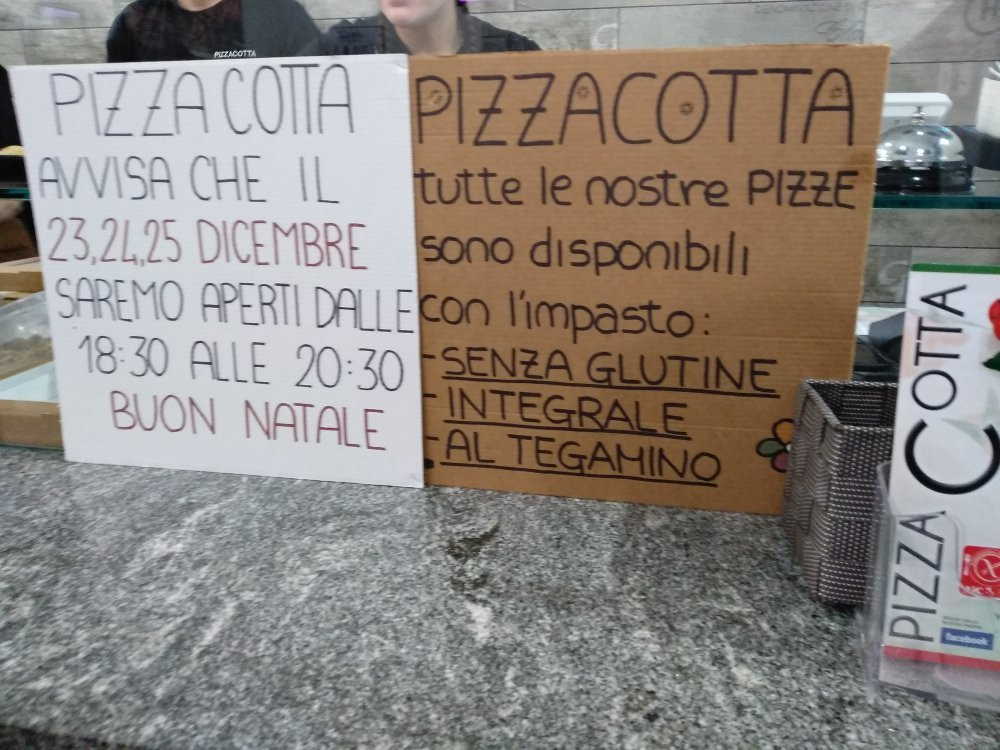 PIZZACOTTA
PIZZA COTTA
AVVISA CHE IL
23,24,25 DICEMBRE
SAREMO APERTI DALLE
18:30 ALLE 20:30
BUON NATALE
PIZZACOTTA
tutte le nostre PIZZE
sono disponibili
con l'impasto:
-SENZA GLUTINE
-INTEGRALE
-AL TEGAMINO
PIZZA COTTA
facebook